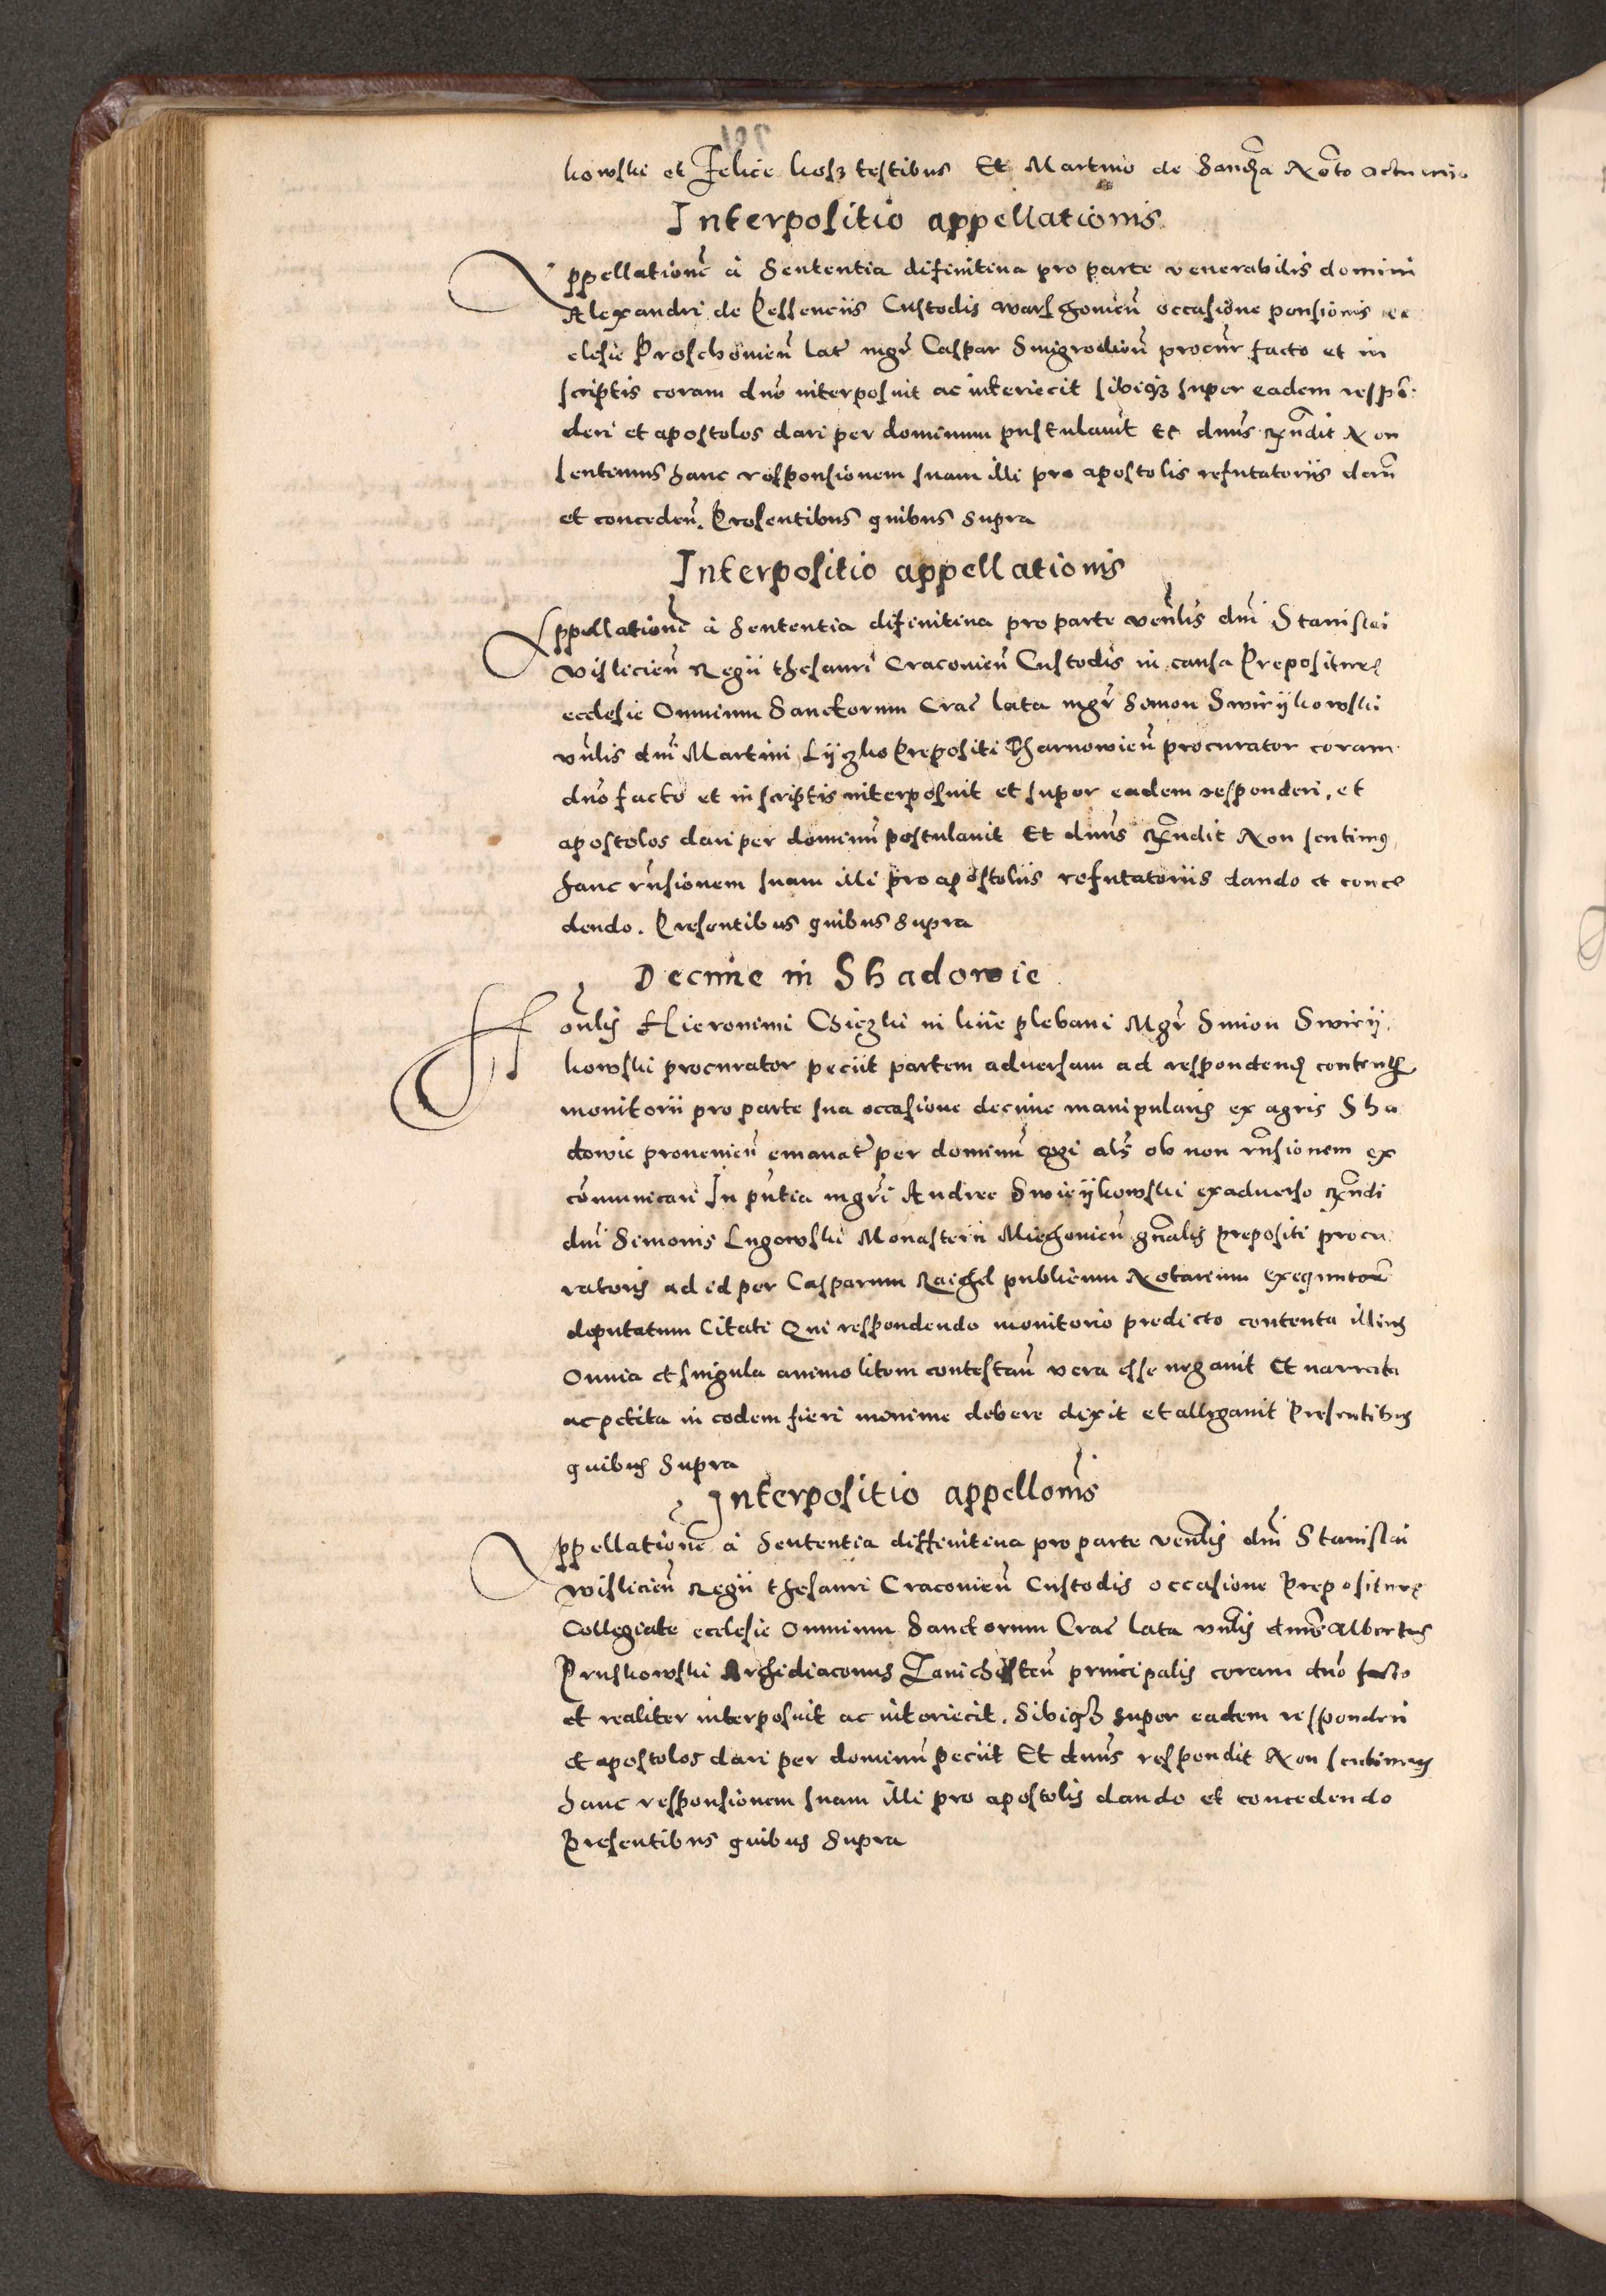 kowski et Felice kosz testibus Et Martino de Sandcza Noto actuario
Interpositio appellationis
Appellationē a Sententia difinitiva pro parte venerabilis domini
Alexandri de Pessenciis Custodis warschovien̄ occasione pensionis ec
clesie Proschovien̄ lat mgr̄ Caspar Smigrodien̄ procur̄ facto et in
scriptis coram dn̄o interposuit ac interiecit sibiqz super eadem respō
deri et apostolos dari per dominum postulavit Et dn̄us rn̄dit Non
sentimus hanc responsionem suam illi pro apostolis refutatoriis dan̄
et conceden̄. Presentibus quibus supra
Interpositio appellationis
Appellationē a Sententia difinitiva pro parte ven̄lis dn̄i Stanislai
vislicien̄ Regii thesauri Cracovien̄ Custodis in causa Prepositure
ecclesie Omnium Sanctorum Crac̄ lata mgr̄ Simon Swirykowski
vn̄lis dn̄i Martini Lyczko Prepositi Tharnowien̄ procurator coram
dn̄o facto et in scriptis interposuit et super eadem responderi, et
apostolos dari per dominū postulavit Et dn̄us rn̄dit Non sentimus
hanc rn̄sionem suam illi pro apostoliis refutatoriis dando et conce
dendo. Presentibus quibus supra
Decime in Skadowie
Hon̄lis Hieronimi in plebani Mgr̄ Simon Swiry
kowski procurator peciit partem adversam ad respondend contentis
monitorii pro parte sua occasione decime manipularis ex agris Ska
dowie provenien̄ emanat per dominū cogi als̄ ob non rn̄sionem ex
cōmunicari In pn̄tia mgr̄i Andree Swirykowski ex adverso rn̄di
dn̄i Simonis Lugowski Monasterii Miechovien̄ gn̄alis prepositi procu
ratoris ad id per Casparum Raichel publicum Notarium exequutorē
deputatum Citati Qui respondendo monitorio predicto contenta illius
Omnia et singula animo litem contestan̄ vera esse negavit Et narrata
ac petita in eodem fieri minime debere dixit et allegavit Presentibus
quibus Supra
Interpositio appellonis
Appellationē a Sententia diffinitiva pro parte ven̄lis dn̄i Stanislai
wislicien̄ Regii thesauri Cracovien̄ Custodis occasione Prepositure
Collegiate ecclesie Omnium Sanctorum Crac̄ lata vn̄lis dn̄us Albertus
Pruskowski Archidiaconus Zavichosten̄ principalis coram dn̄o facto
et realiter interposuit ac interiecit. Sibiqz super eadem responderi
et apostolos dari per dominū peciit Et dn̄us respondit Non sentimus
hanc responsionem suam illi pro apostolis dando et concedendo
Presentibus quibus Supra